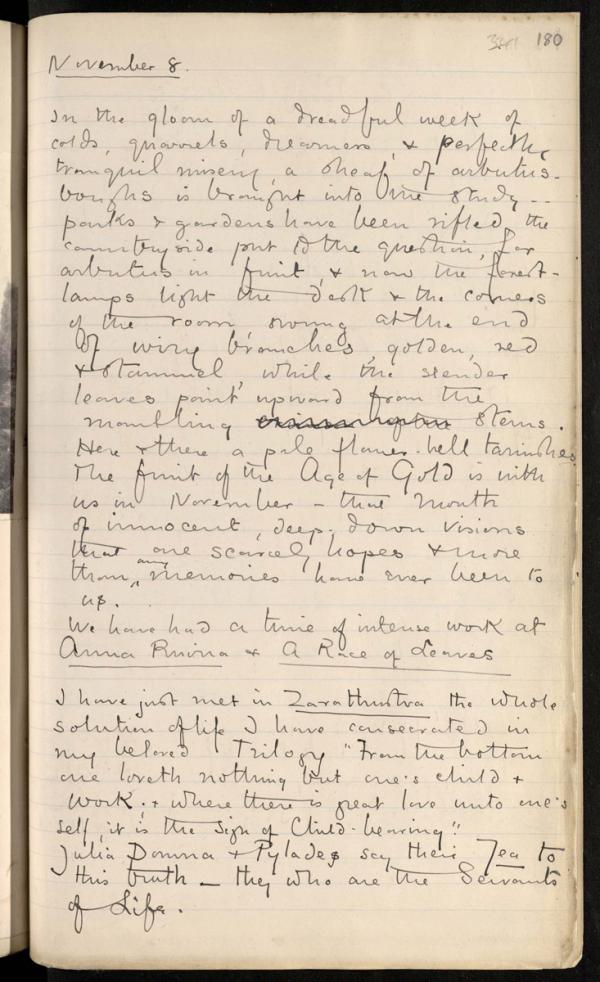 180
November 8.
In the gloom of a dreadful week of
colds, quarrels, drearness, & perfectly
tranquil misery, a sheaf of arbutus-
boughs is brought into the study --
parks & gardens have been rifled, the
countryside put to the question, for
arbutus in fruit, & now the forest-
lamps light the desk & the corners
of the room, swung at the end
of wiry branches, golden, red
& stammel, while the slender
leaves point upward from the
stems.
Here & there a pale flower-bell tarnishes
The fruit of the Age of Gold is with
us in November – that month
of innocent, deep-down visions
that are scarcely hopes & more
than any memories have ever been to
us.
We have had a time of intense work at
Anna Ruina & A Race of Leaves
I have just met in Zarathustra the whole
solution of life I have consecrated in
my beloved Trilogy "From the bottom
one loveth nothing but one's child &
work; & where there is great love unto one's
self, it is the sign of Child-bearing".
Julia Domna & Pylades say their Yea to
this truth – they who are the Servants
of Life.